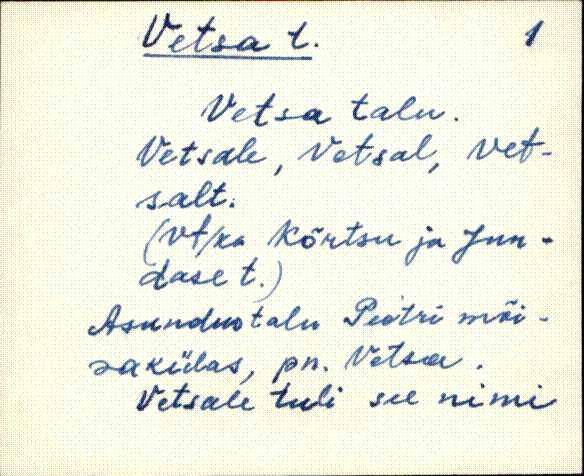 Vetsa t. 1
Vetsa talu.
Vetsale, Vetsal, Vet-
salt.
(Vt/ka Kõrtsu ja Jun-
dase t.)
Asundustalu Peetri mõi-
sakülas, pn. Vetsa.
Vetsale tuli see nimi